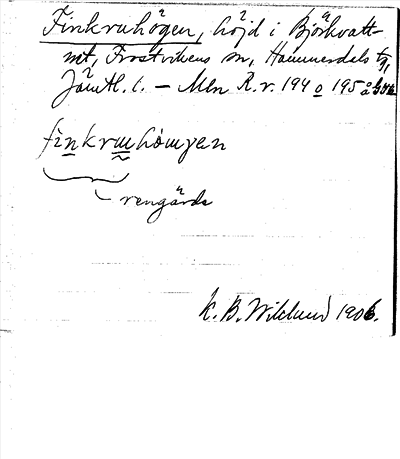 Finkruhögen, höjd i Björkvatt-
mt, Frostvikens sn, Hammerdals tg,
Jämtl. l. – Mln R.r. 194 o 195
finkrmhömyen
rengärde
K. B. Wiklund 1906.